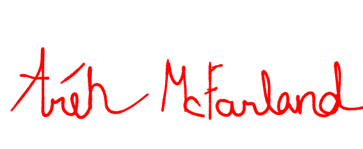 Aréh McFarland